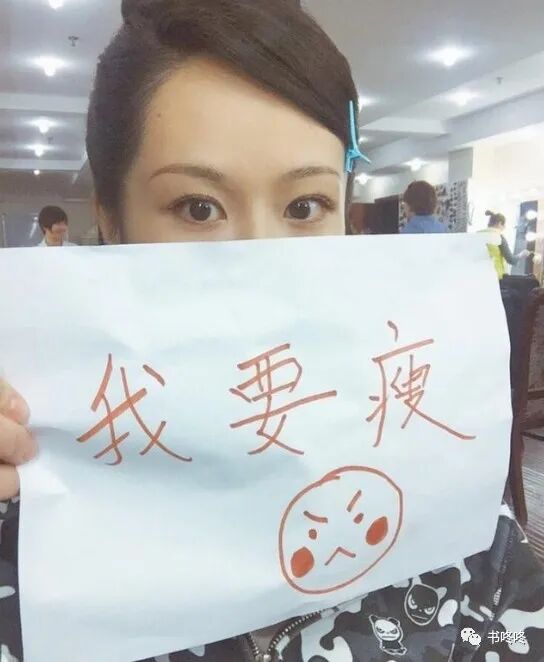 我要瘦
书咚咚